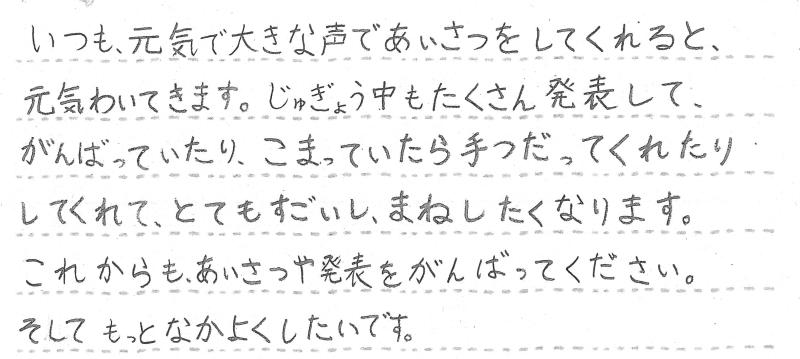 いつも、元気で大きな声であいさつをしてくれると、
元気わいてきます。じゅぎょう中もたくさん発表して、
がんばっていたり、こまっていたら手つだってくれたり
してくれて、とてもすごいし、まねしたくなります。
これからも、あいさつや発表をがんばってください。
そしてもっとなかよくしたいです。